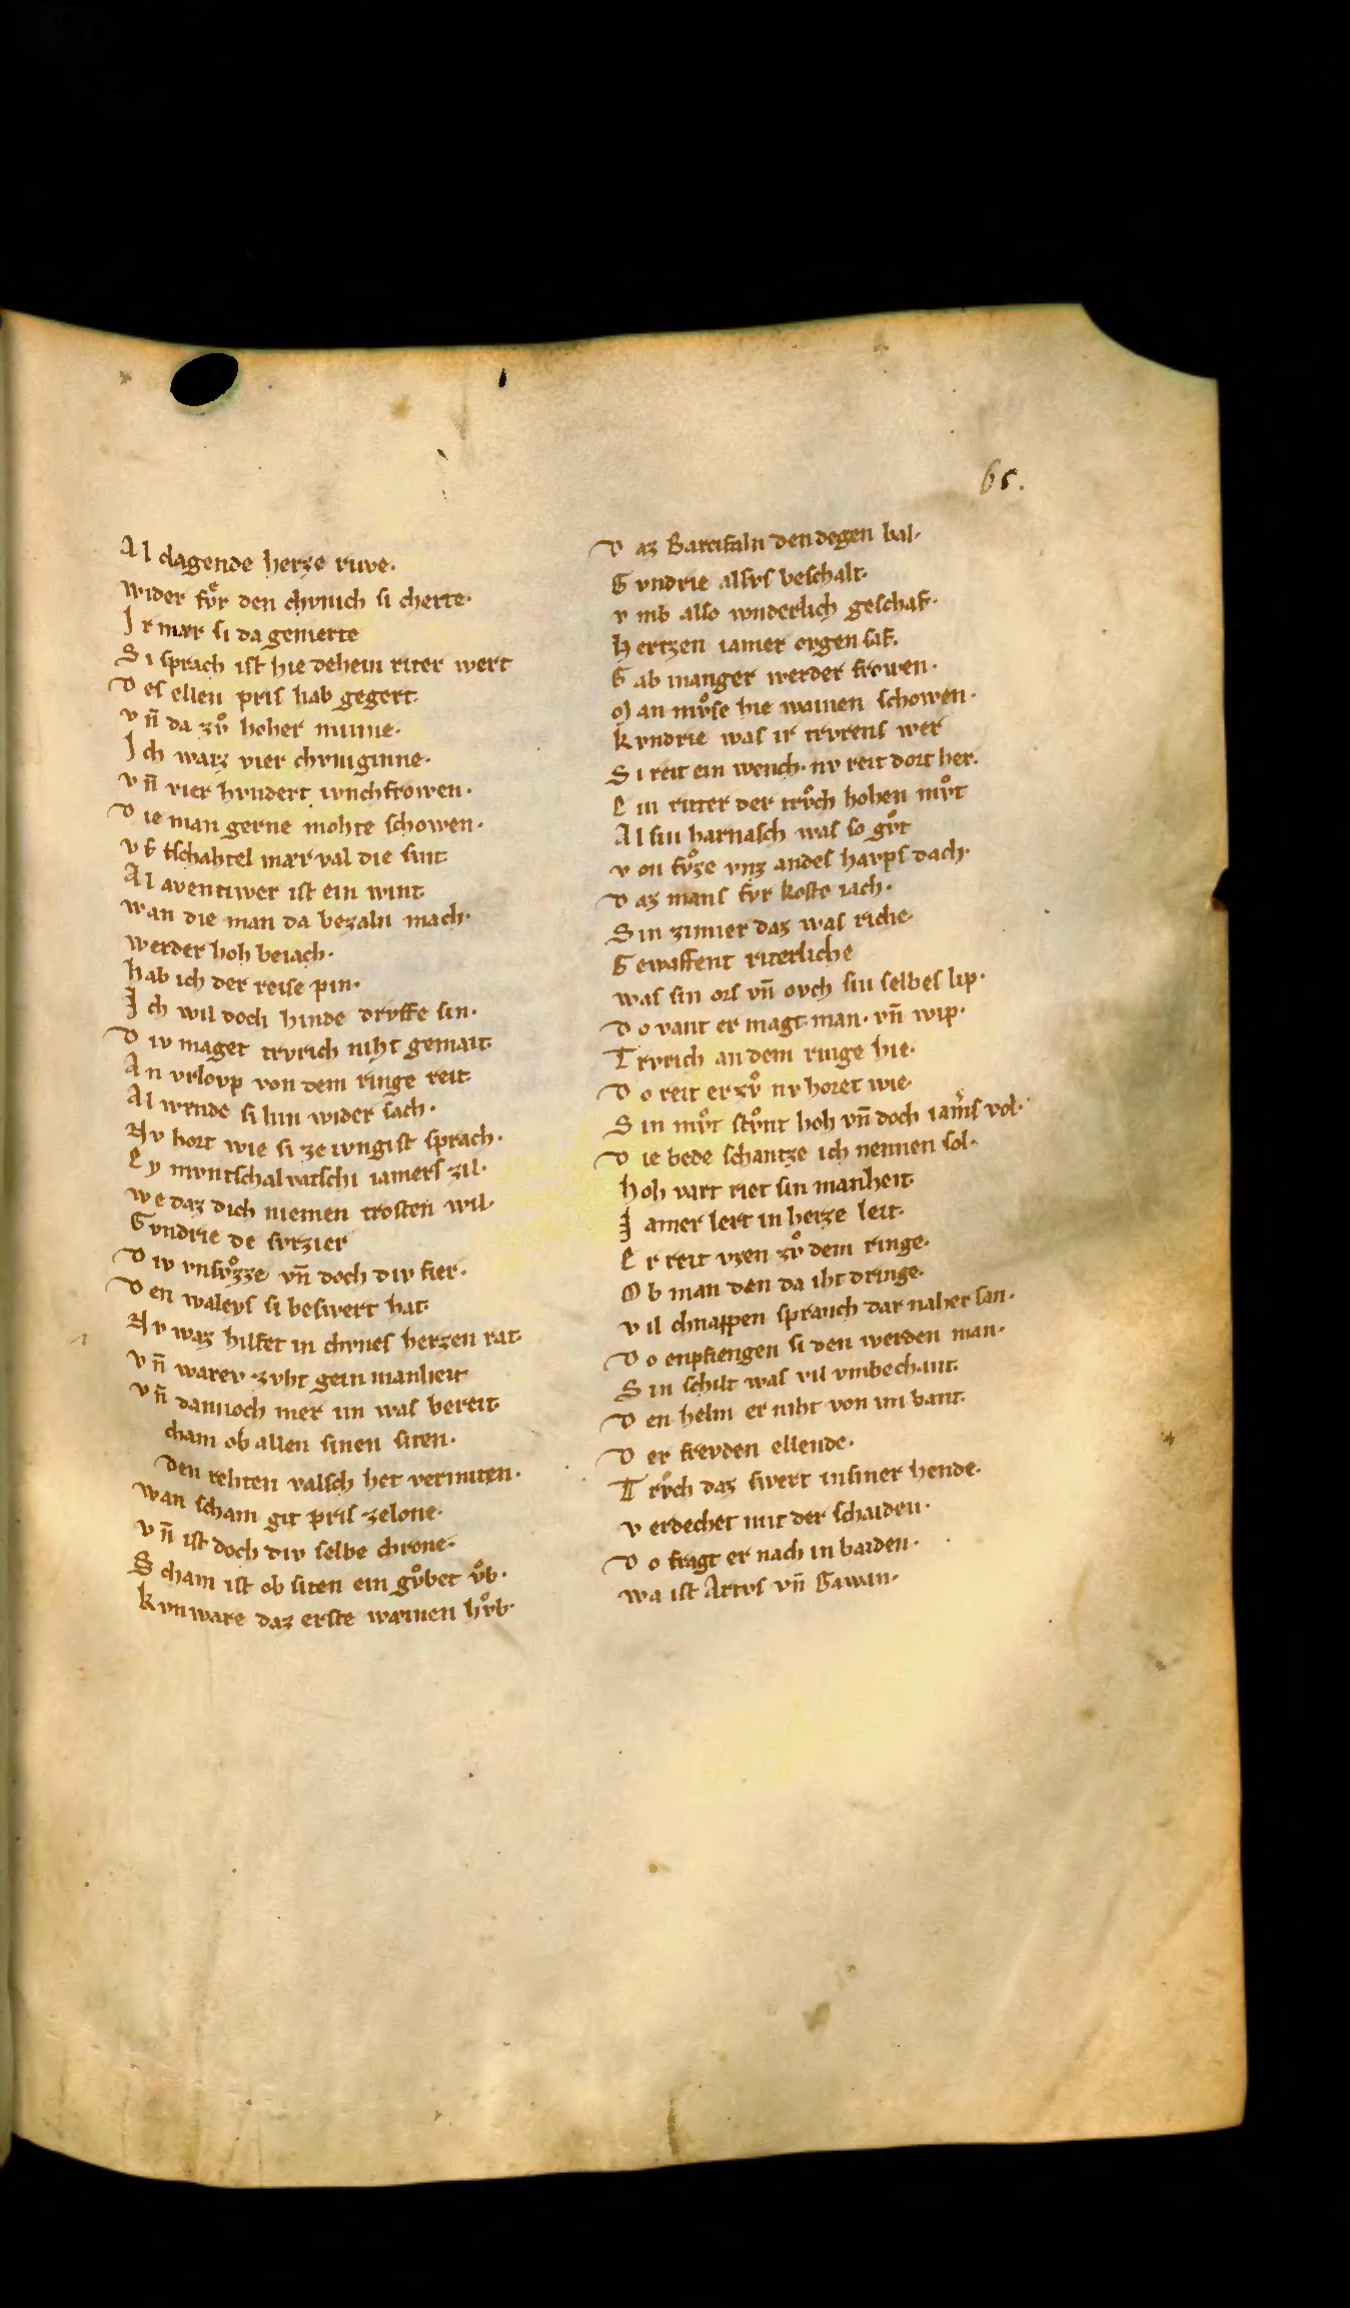 65.
Al clagende herze ruwe·
wider fvͤr den chvnich si cherte·
Ir mær si da gemerte
Si sprach ist hie dehein riter wert
Des ellen pris hab gegert·
vn̄ da zvͦ hoher minne·
Ich waiz vier chvniginne·
vn̄ vier hvndert ivnchfrowen·
Die man gerne mohte schowen·
vf tschahtel mærval die sint
Al aventiwer ist ein wint
wan die man da bezaln mach·
werder hoh beiach·
hab ich der reise pin·
Ich wil doch hinde drvffe sin·
Div maget trvrich niht gemait·
An vrlovp von dem ringe reit·
Al wende si hin wider sach·
Nv hort wie si ze ivngist sprach·
Ey mvntschalvatschi iamers zil·
we daz dich niemen trosten wil·
Gvndrie de svrzier
Div vnsvͦzze vn̄ doch div fier·
Den waleys si beswert hat·
Nv waz hilfet in chvnes herzen rat·
vn̄ warev zvht gein manheit
vn̄ dannoch mer im was bereit·
cham ob allen sinen siten·
den rehten valsch het vermiten·
wan scham git pris zelone·
vn̄ ist doch div selbe chrone·
Scham ist ob siten ein gvͦbet vͦb·
Kvnware daz erste wæinen hvͦb·
Daz Barcifaln den degen bal·
Gvndrie alsvs beschalt·
vmb also wnderlich geschaf·
Hertzen iamer ovgen saf·
Gab manger werder frowen·
Man mvͦse hie wainen schowen·
Kvndrie was ir trvrens wer
Si reit ein wench· nv reit dort her·
Ein ritter der trvͦch hohen mvͦt
Al sin harnasch was so gvͦt
von fvͦze vnz andes havps dach·
Daz mans fvr koste iach·
Sin zimier daz was riche·
Gewaffent riterliche
was sin ors vn̄ ovch sin selbes lip·
Do vant er magt· man· vn̄ wip·
Trvrich an dem ringe hie·
Do reit er zvͦ nv horet wie·
Sin mvͦt stvͦnt hoh vn̄ doch iam͛s vol·
Die bede schantze ich nennen sol·
hoh vart riet sin manheit·
Iamer lert in herze leit·
Er reit vzen zvͦ dem ringe·
Ob man den da iht dringe·
vil chnappen spranch dar naher san·
Do enpfiengen si den werden man·
Sin schilt was vil vmbechant·
Den helm er niht von im bant·
Der frevden ellende·
Trvͦch daz swert insiner hende·
verdechet mit der schaiden·
Do fragt er nach in baiden·
wa ist Artvs vn̄ Gawan·